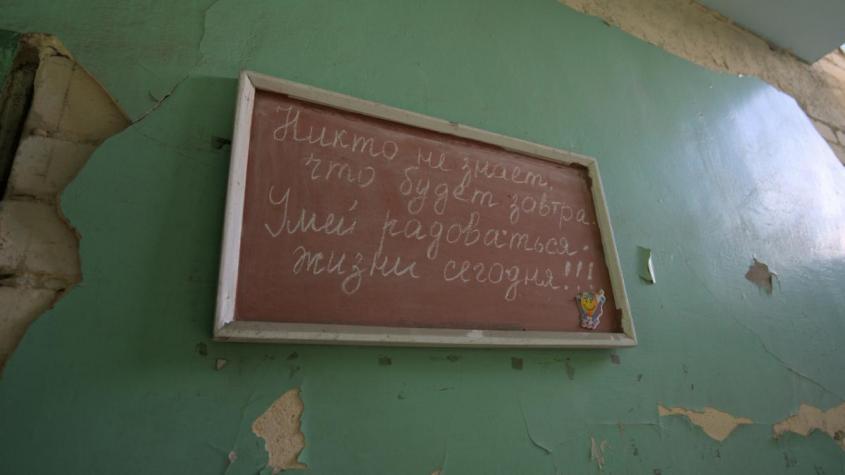 Никто не знает,
что будет завтра.
Умей радоваться
жизни сегодня!!!